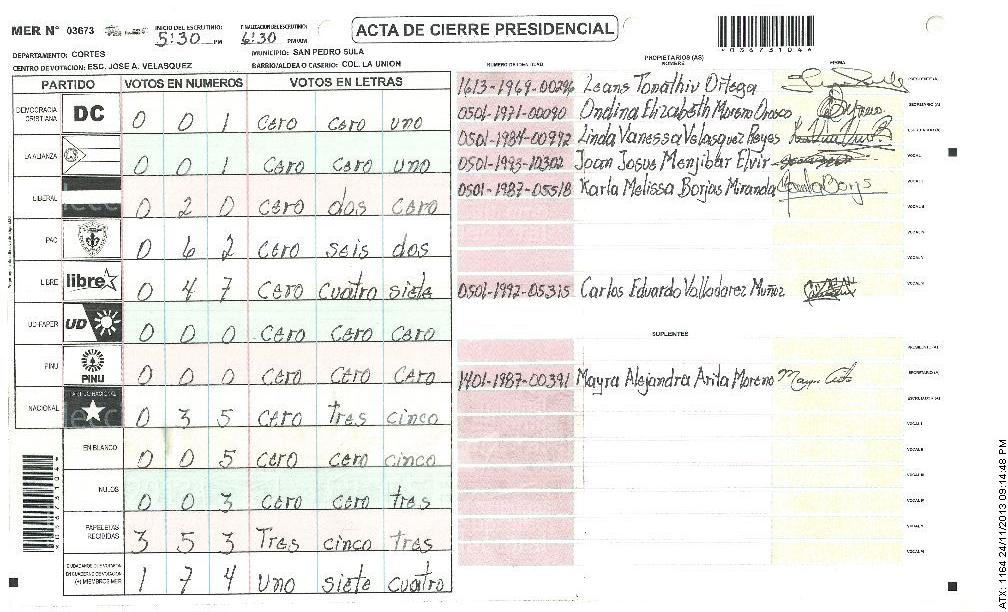 MER N° 03673
INICIO DEL ESCRUTINIO: 5:30 PM
FINALIZACION DEL ESCRUTINIO: 6:30 PM
ACTA DE CIERRE PRESIDENCIAL
DEPARTAMENTO: CORTES
MUNICIPIO: SAN PEDRO SULA
CENTRO DE VOTACION: ESC. JOSE A. VELASQUEZ
BARRIO/ALDEA O CASERIO: COL. LA UNION
PARTIDO VOTOS EN NUMEROS VOTOS EN LETRAS
DEMOCRACIA CRISTIANA DC 0 0 1 cero cero uno
LA ALIANZA 0 0 1 cero cero uno
LIBERAL 0 2 0 cero dos cero
PAC 0 6 2 cero seis dos
LIBRE libre 0 4 7 cero cuatro siete
UD-FAPER UD 0 0 0 cero cero cero
PINU PINU 0 0 0 cero cero cero
NACIONAL 0 3 5 cero tres cinco
EN BLANCO 0 0 5 cero cero cinco
NULOS 0 0 3 cero cero tres
PAPELETAS RECIBIDAS 3 5 3 Tres cinco tres
(+) MIEMBROS MER 1 7 4 uno siete cuatro
PROPIETARIOS (AS)
NUMERO DE IDENTIDAD NOMBRE FIRMA
1613-1969-00296 Leans Tonathiv Ortega PRESIDENTE (A)
0501-1971-00090 Ondina Elizabeth Moreno Orosco SECRETARIO (A)
0501-1984-00992 Linda Vanessa Velasquez Reyes
0501-1993-10302 Joan Josus Menjibar Elvir VOCAL I
0501-1987-05518 Karla Melissa Borjas Miranda
0501-1992-05315 Carlos Eduardo Valladarez Muñoz
SUPLENTES
PRESIDENTE (A)
1401-1987-00391 Mayra Alejandra Arita Moreno SECRETARIO (A)
ESCRUTADOR (A)
ATX: 1164 24/11/2013 09:14:48 PM